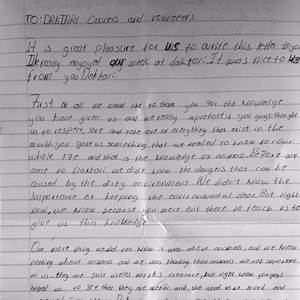 TO: DAKTARI Owners and volunteers
It is great pleasure for US to write this letter to you
I really enjoyed our week at daktari. It was nice to us
from you Daktari.
First of all we want to thank you for the knowledge
you have given us and we really apreciate is you guys thought
us to respect, love and care of everything that exist in the
world. you gave us something that we needed to know for our
whole life and that is the knowledge of animals Before we
came to Daktari we didn't know the dangers that can be
caused by the dirty environment We didn't know the
importance of keeping the environmental clean. But right
now, we know because you were out there to teach us to
give us this knowledge.
One more thing we did not know is was about animals and we knew
nothing about animals and we was thinking that animals we not importance
to us, they are just useless creature, but right now you guys
helped us to see that they are useful and the need to be loved and